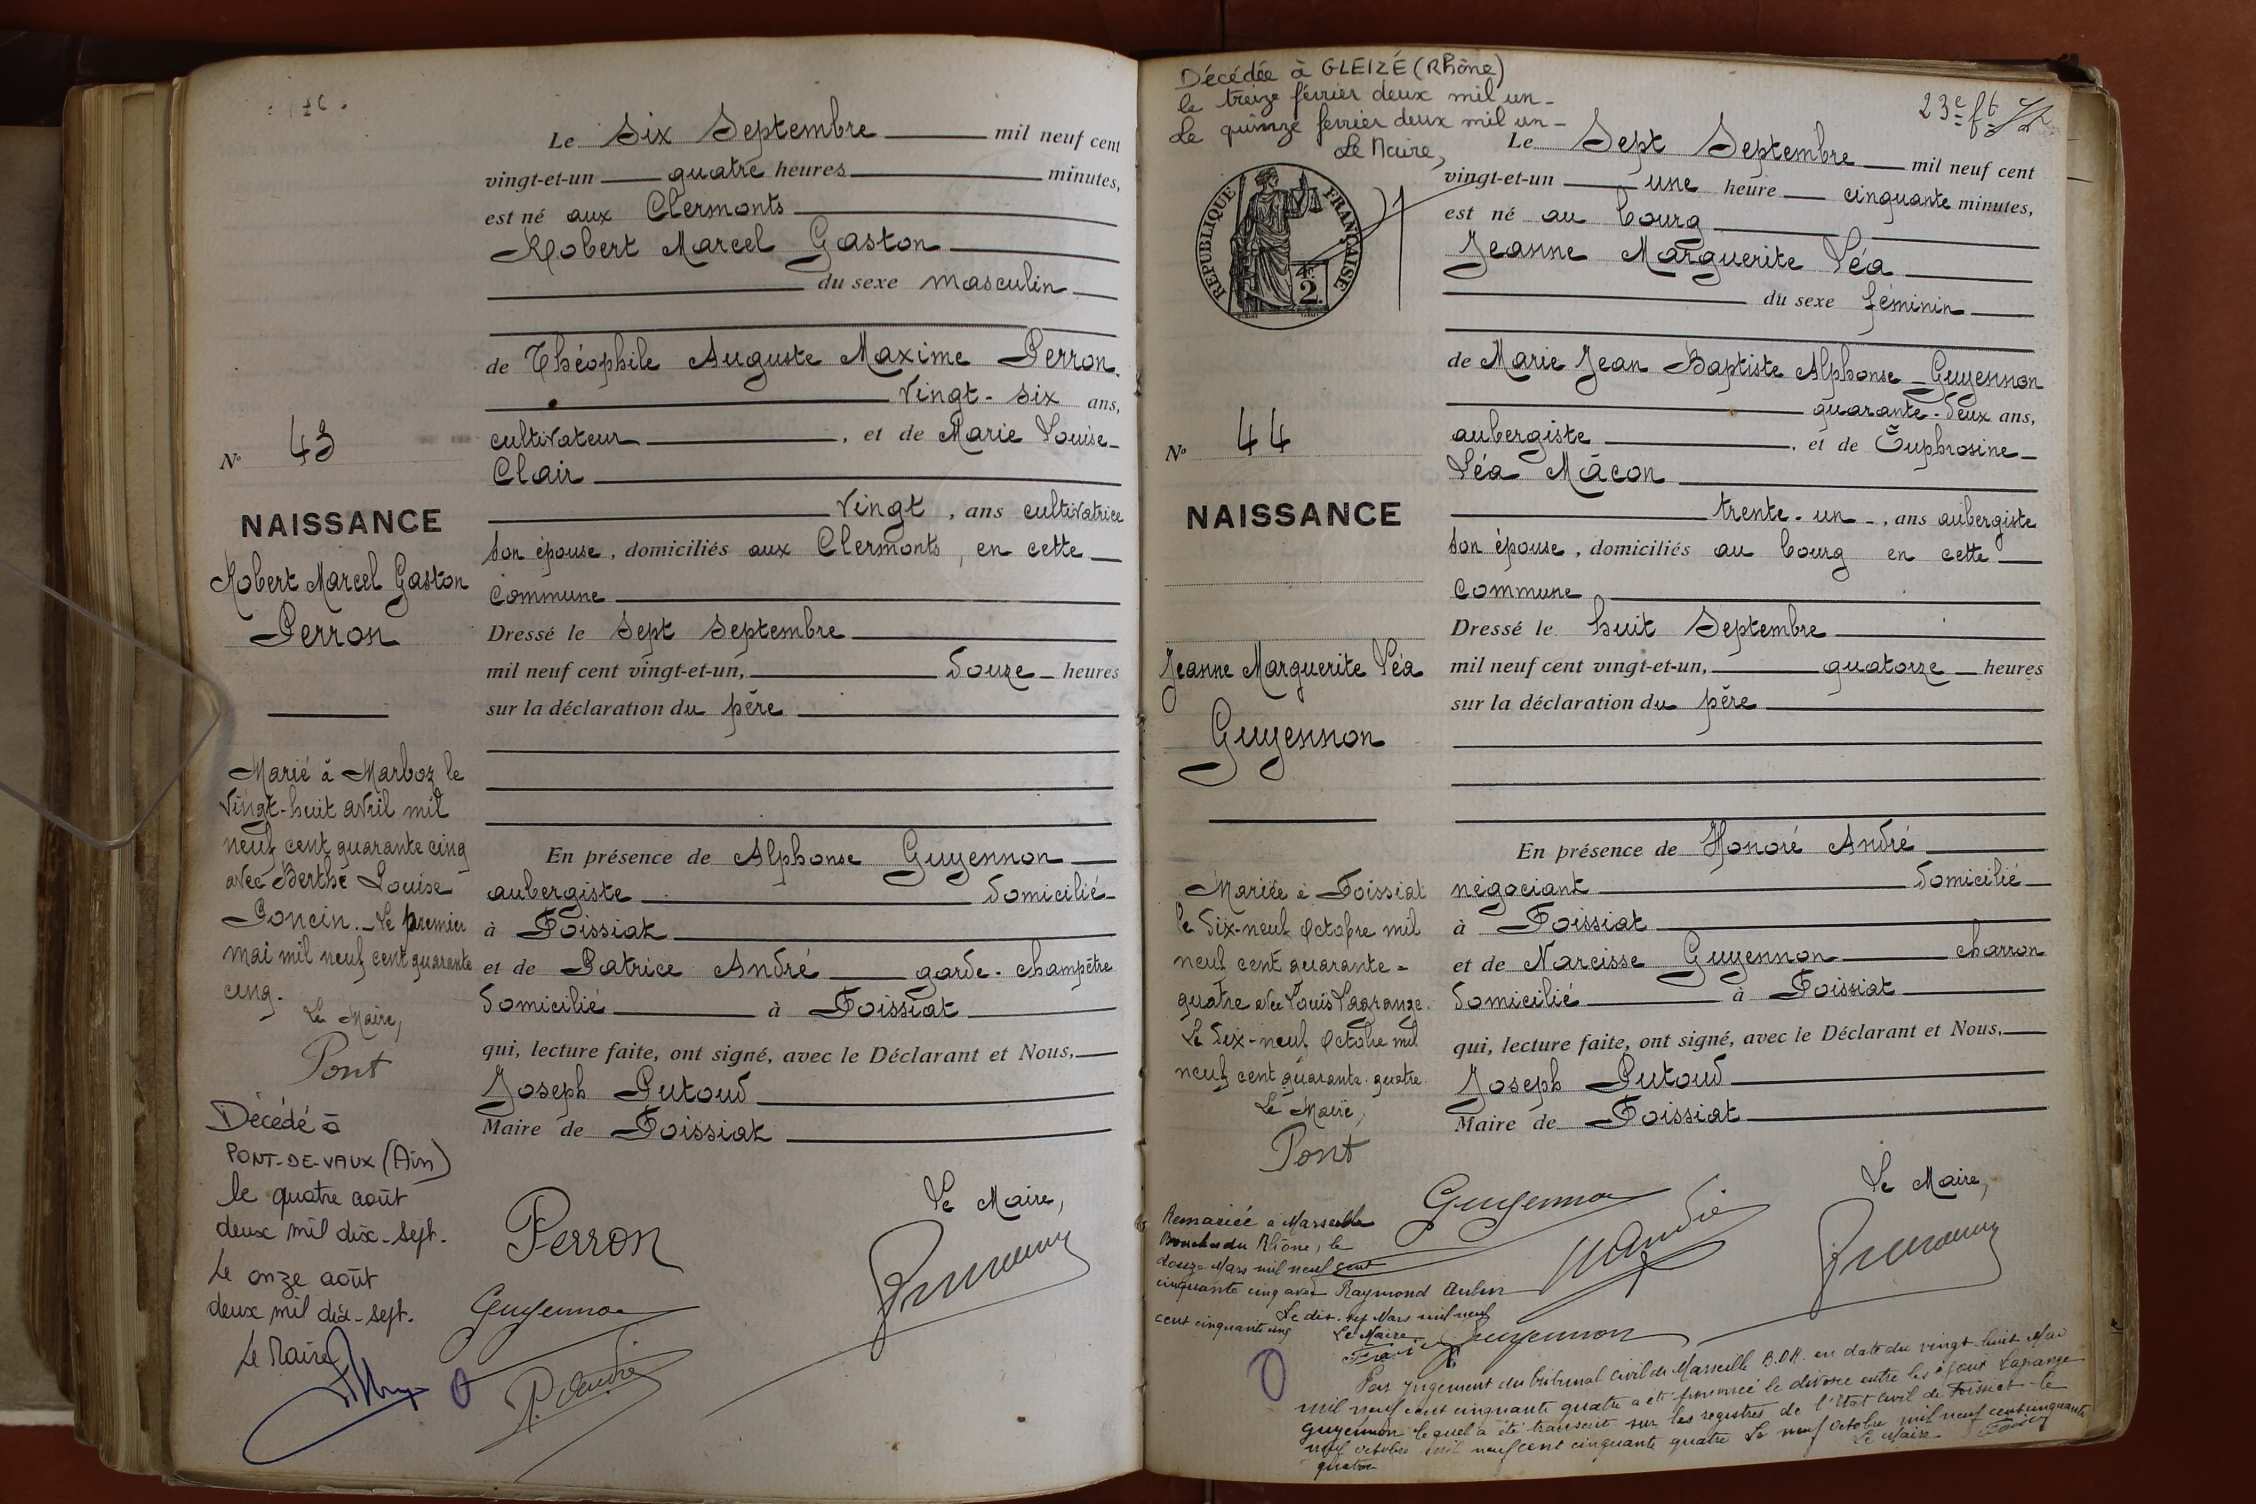 Le Six Septembre mil neuf cent
vingt-et-un quatre heures minutes,
est né aux Clermonts
Robert Marcel Gaston
du sexe masculin
de Théophile Auguste Maxime Perron
vingt-six ans,
cultivateur, et de Marie Louise
Clair
vingt, ans cultivatrice
son épouse, domiciliés aux Clermonts, en cette
commune
Dressé le sept septembre
mil neuf cent vingt-et-un, douze heures
sur la déclaration du père
En présence de Alphonse Guyennon
aubergiste domicilié
à Foissiat
et de Patrice André garde-champêtre
domicilié à Foissiat
qui, lecture faite, ont signé, avec le Déclarant et Nous,
Joseph Putoud
Maire de Foissiat
Le Maire,
Perron
Guyennon
P. André
No 43
NAISSANCE
Robert Marcel Gaston
Perron
Marié à Marboz le
vingt-huit avril mil
neuf cent quarante cinq
avec Berthe Louise
Poncin. Le premier
mai mil neuf cent quarante
cinq.
Le Maire,
Pont
Décédé à
PONT-DE-VAUX (Ain)
le quatre août
deux mil dix-sept.
Le onze août
deux mil dix-sept.
Le Maire
Décédée à GLEIZÉ (Rhône)
le treize février deux mil un -
Le quinze fevrier deux mil un -
Le Maire,
23e ft
REPUBLIQUE FRANÇAISE
2
Le Sept Septembre mil neuf cent
vingt-et-un une heure cinquante minutes,
est né au bourg
Jeanne Marguerite Léa
du sexe féminin
de Marie Jean Baptiste Alphonse Guyennon
quarante-deux ans,
aubergiste, et de Euphrosine
Léa Mâcon
trente-un, ans aubergiste
son épouse, domiciliés au bourg en cette
commune
Dressé le huit Septembre
mil neuf cent vingt-et-un, quatorze heures
sur la déclaration du père
En présence de Honoré André
négociant domicilié
à Foissiat
et de Narcisse Guyennon charron
domicilié à Foissiat
qui, lecture faite, ont signé, avec le Déclarant et Nous,
Joseph Putoud
Maire de Foissiat
Le Maire,
Guyennon
H André
Guyennon
No 44
NAISSANCE
Jeanne Marguerite Léa
Guyennon
Mariée à Foissiat
le dix-neuf octobre mil
neuf cent quarante-
quatre avec Louis Lagrange.
Le dix-neuf octobre mil
neuf cent quarante-quatre.
Le Maire,
Pont
Remariée à Marseille
Bouches du Rhône, le
douze Mars mil neuf cent
cinquante cinq avec Raymond Aubin
Le dix-sept Mars mil neuf
cent cinquante cinq Le Maire
Par jugement du tribunal civil de Marseille B.D.R. en date du vingt huit Mai
mil neuf cent cinquante quatre a été prononcé le divorce entre les époux Lagrange
Guyennon lequel a été transcrit sur les registres de l'Etat Civil de Foissiat le
neuf octobre mil neuf cent cinquante quatre Le neuf octobre mil neuf cent cinquante
quatre Le Maire